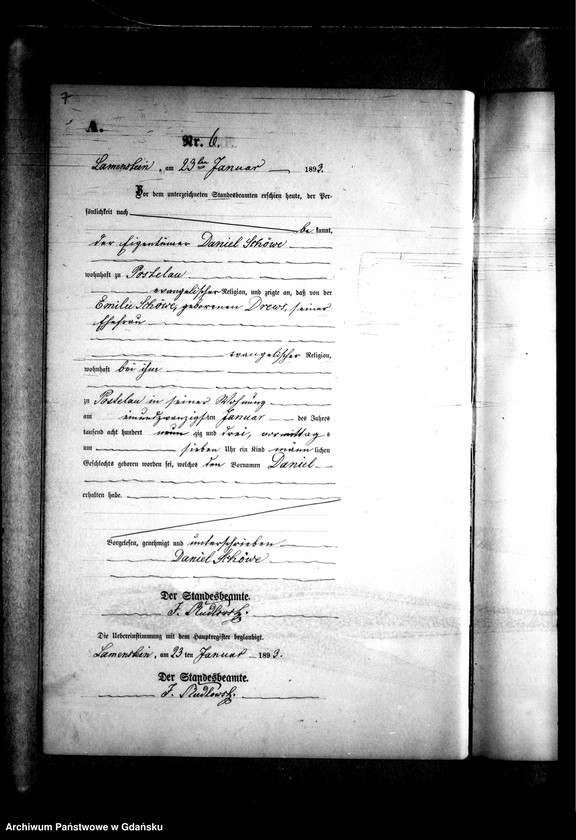 7
A.
Nr. 6.
Lamenstein, am 23ten Januar 1893.
Vor dem unterzeichneten Standesbeamten erschien heute, der Per-
sönlichkeit nach
be kannt,
der Eigentümer Daniel Schöwe
wohnhaft zu Postelau
evangelischer Religion, und zeigte an, daß von der
Emilie Schöwe, geborenen Drews, seiner
Ehefrau
evangelischer Religion,
wohnhaft bei ihm
zu Postelau in seiner Wohnung
am einundzwanzigsten Januar des Jahres
tausend acht hundert neun zig und drei, vormittag s
um sieben Uhr ein Kind männ lichen
Geschlechts geboren worden sei, welches den Vornamen Daniel
erhalten habe.
Vorgelesen, genehmigt und unterschrieben
Daniel Schöwe
Der Standesbeamte.
Die Uebereinstimmung mit dem Hauptregister beglaubigt.
Lamenstein, am 23 ten Januar 1893.
Der Standesbeamte.
Archiwum Państwowe w Gdańsku